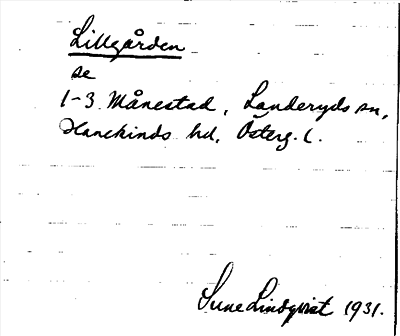 Lillgården
se
1-3 Månestad, Landeryds sn,
Hanekinds hd, Österg. l.
Sune Lindqvist 1931.